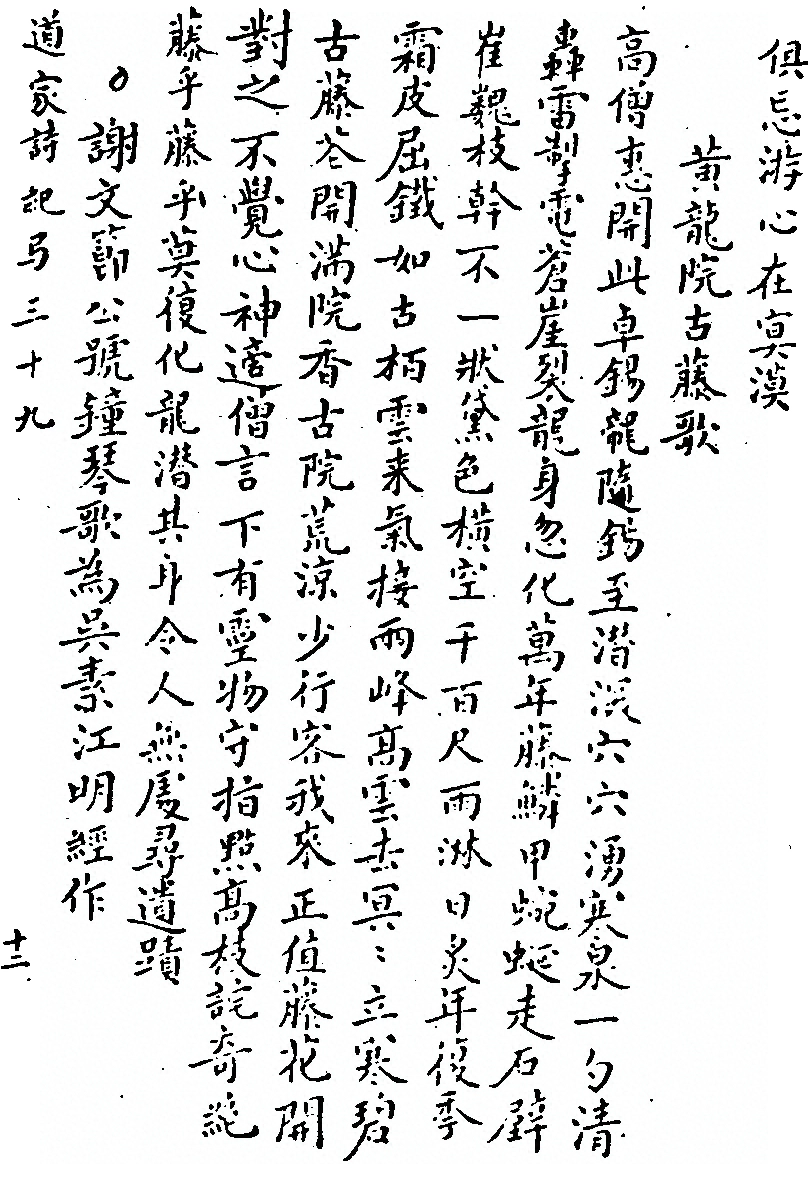 俱忘游心在寞漠
黃龍院古藤歌
高僧惠開此卓錫龍隨錫至潜混穴穴湧寒泉一勺清
轟雷掣電蒼崖裂龍身忽化萬年藤鱗甲蜿蜒走石壁
崔巍枝幹不一狀黛色橫空千百尺雨淋日炙年復季
霜皮屈鐵如古柏雲来氣接兩峰高雲去冥〻立寒碧
古藤花開滿院香古院荒涼少行客我來正值藤花開
對之不覺心神適僧言下有靈物守指點高枝詫奇絕
藤乎藤乎莫復化龍潜其身令人無處尋遺蹟
謝文節公號鐘琴歌為吳素江明經作
道家詩紀 三十九
十二